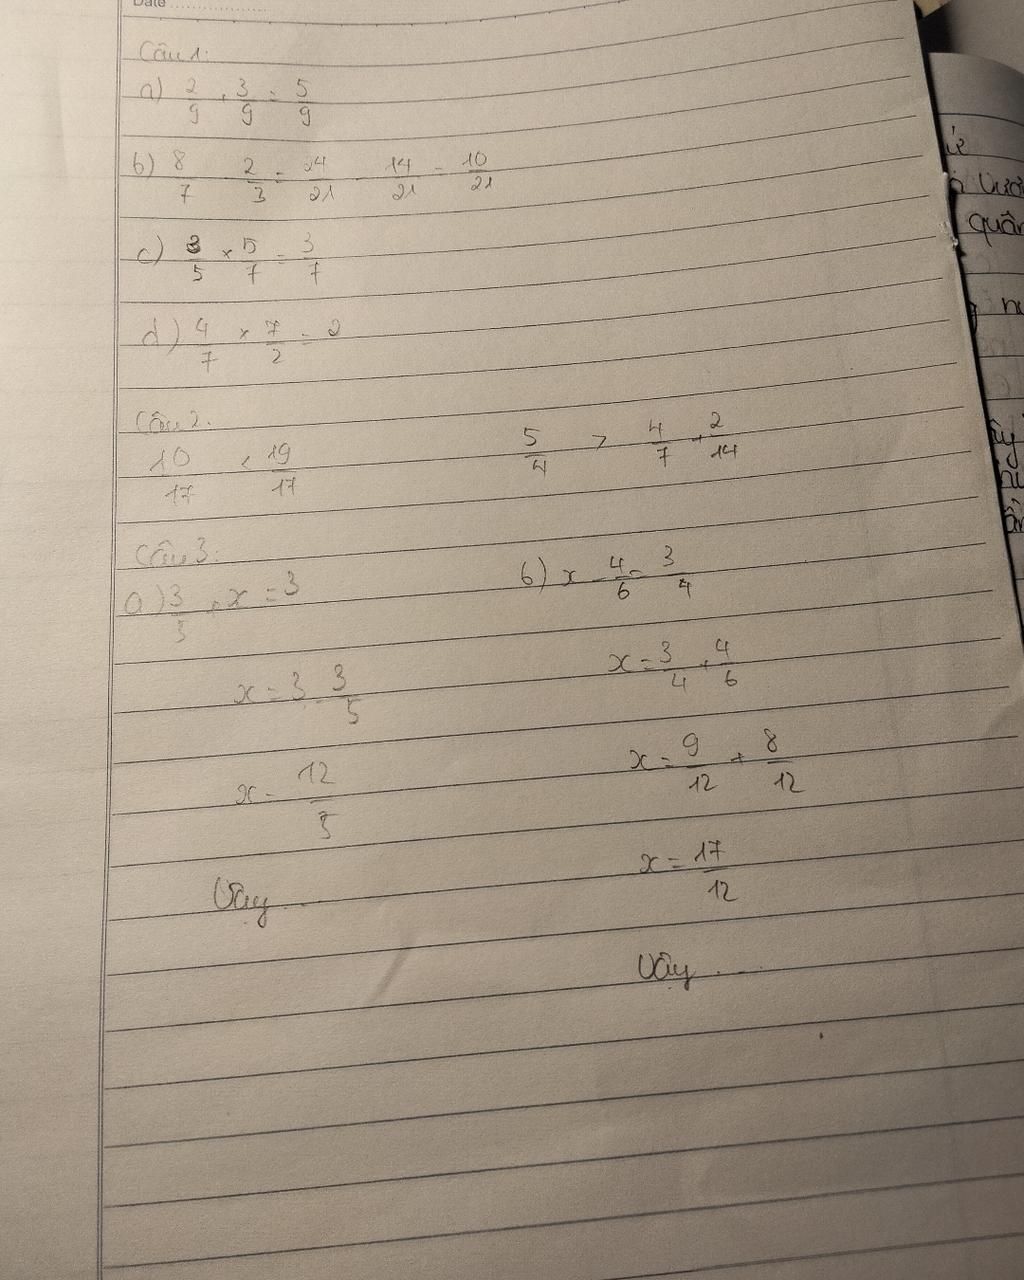 Date
Câu 1:
a) 2/9 + 3/9 = 5/9
b) 8/7 - 2/3 = 24/21 - 14/21 = 10/21
c) 3/5 × 5/7 = 3/7
d) 4/7 × 7/2 = 2
Câu 2.
10/17 < 19/17 5/4 > 4/7 + 2/14
Câu 3:
a) 3/5 + x = 3
x = 3 - 3/5
x = 12/5
Vậy ....
b) x - 4/6 = 3/4
x = 3/4 + 4/6
x = 9/12 + 8/12
x = 17/12
Vậy ....
quân